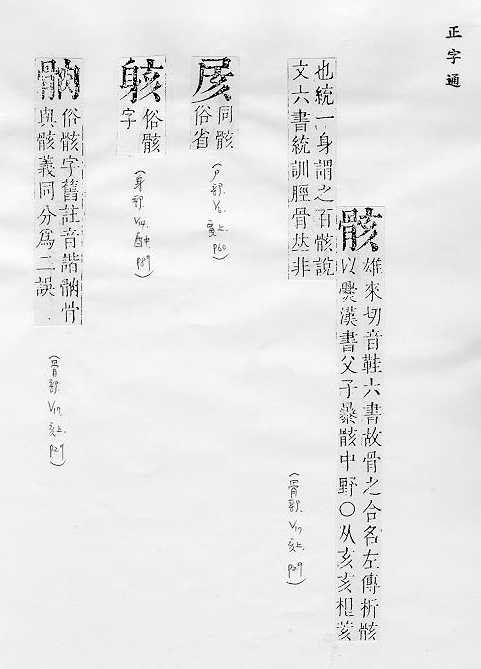 正字通
骸
雄來切音鞋六書故骨之合名左傳析骸
以爨漢書父子暴骸中野○从亥亥相荄
也統一身謂之百骸說
文六書統訓脛骨𠀤非
(骨部. V17. 亥上. P29)
同骸
俗省
(尸部. V6. 寅上. P60)
俗骸
字
(身部. V14. 酉中. P89)
俗骸字舊註音諧骨
與骸義同分爲二誤.
(骨部. V17. 亥上. P29)